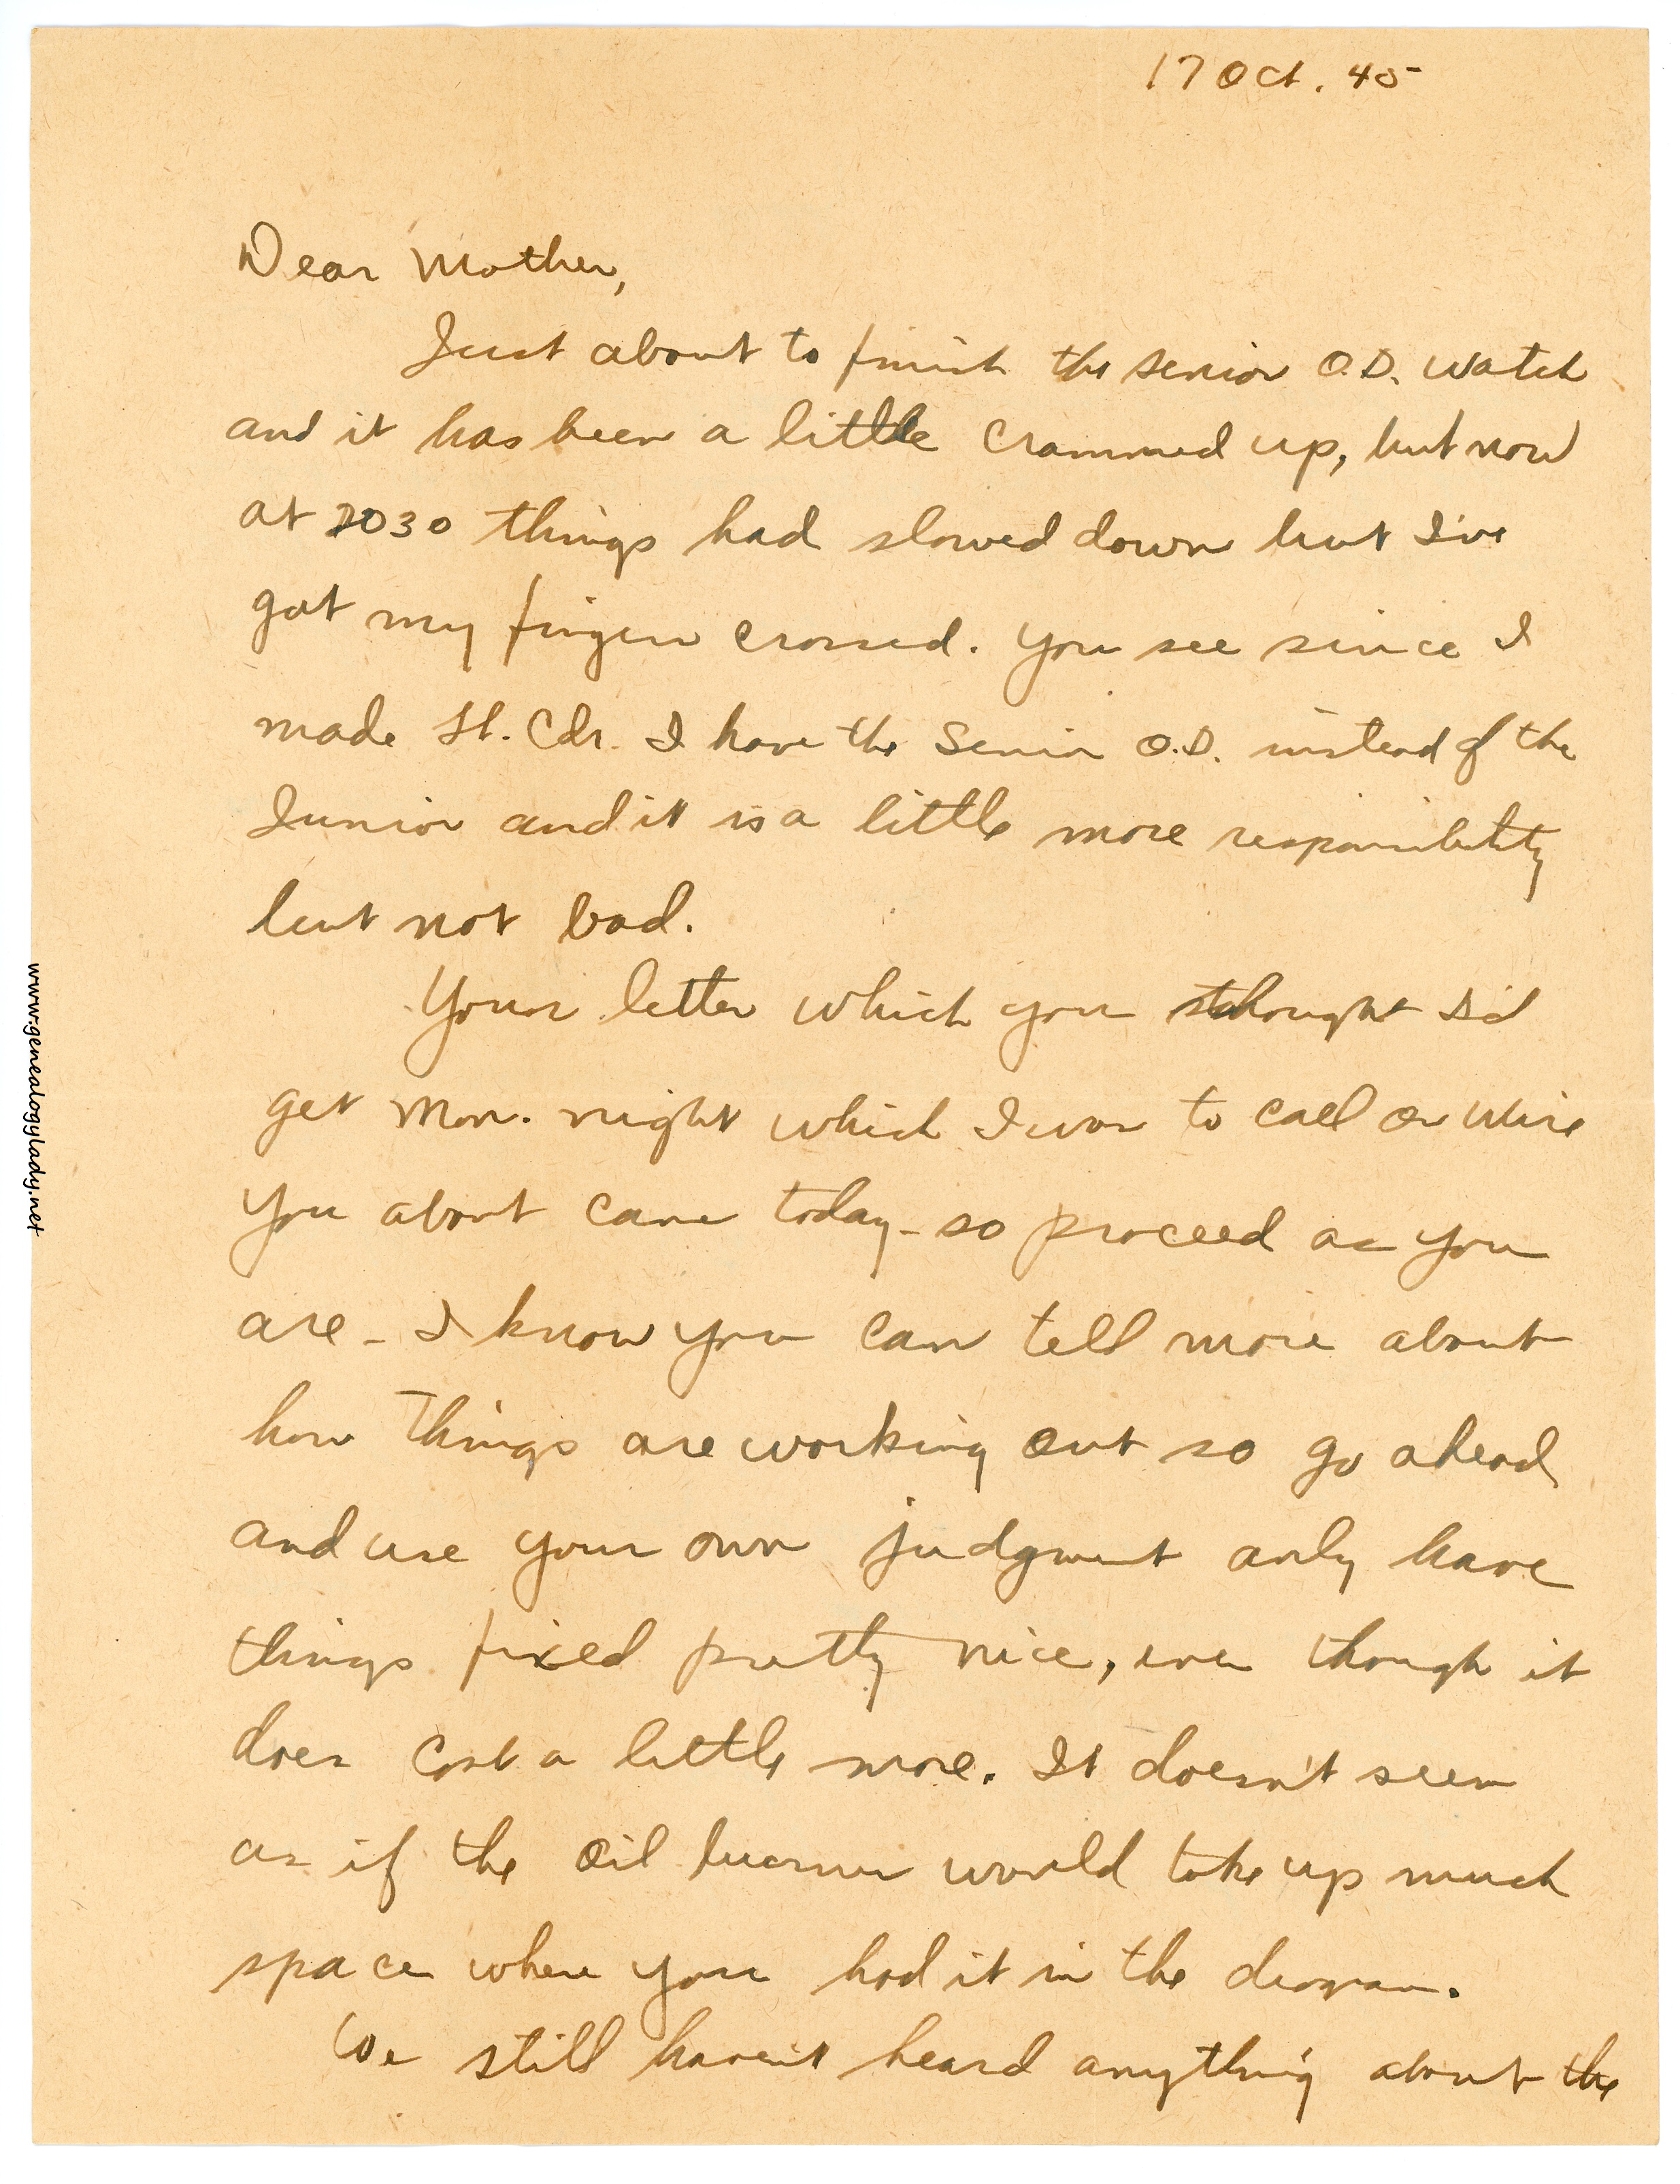 17 Oct. 45
Dear Mother,
Just about to finish the senior O.D. watch
and it has been a little crammed up, but now
at 2030 things had slowed down but I've
got my fingers crossed. You see since I
made Lt. Cdr. I have the Senior O.D. instead of the
Junior and it is a little more responsibility
but not bad.
Your letter which you thought I'd
get Mon. night which I was to call or wire
you about came today - so proceed as you
are - I know you can tell more about
how things are working out so go ahead
and use your own judgment only have
things fixed pretty nice, even though it
does cost a little more. It doesn't seem
as if the oil burner would take up much
space where you had it in the diagram.
We still haven't heard anything about the
www.genealogylady.net